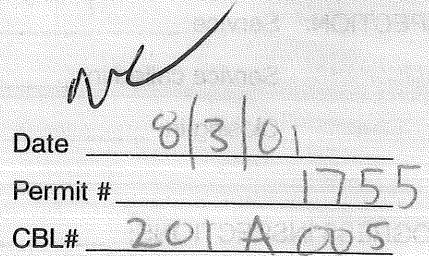 Date 8/3/01
Permit # 1755
CBL# 201 A 005